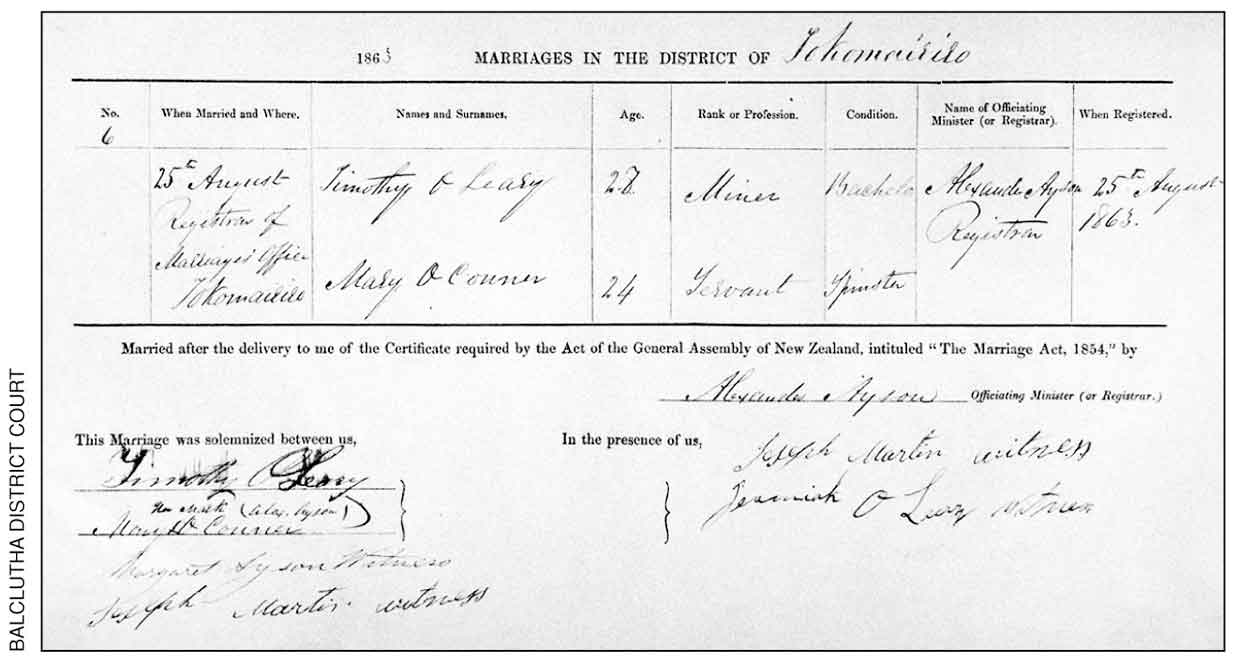 1863 MARRIAGES IN THE DISTRICT OF Tokomairiro
No. When Married and Where. Names and Surnames. Age. Rank or Profession. Condition. Name of Officiating Minister (or Registrar). When Registered.
6
25th August Timothy O Leary 28 Miner Bachelo Alexander Ayson 25th August
Registrar of Registrar 1863.
Marriages Office Mary O Conner 24 Servant Spinster
Tokomairiro
Married after the delivery to me of the Certificate required by the Act of the General Assembly of New Zealand, intituled "The Marriage Act, 1854," by
Alexander Ayson Officiating Minister (or Registrar.)
This Marriage was solemnized between us, In the presence of us,
Timothy O Leary Joseph Martin witness
Her Mark (Alex. Ayson)
Mary O Conner Jeremiah O Leary witness
Margaret Ayson Witness
Joseph Martin witness
BALCLUTHA DISTRICT COURT